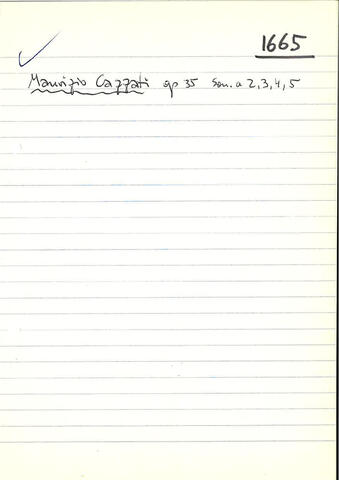 1665
Maurizio Cazzati op 35 Son. a 2, 3, 4, 5